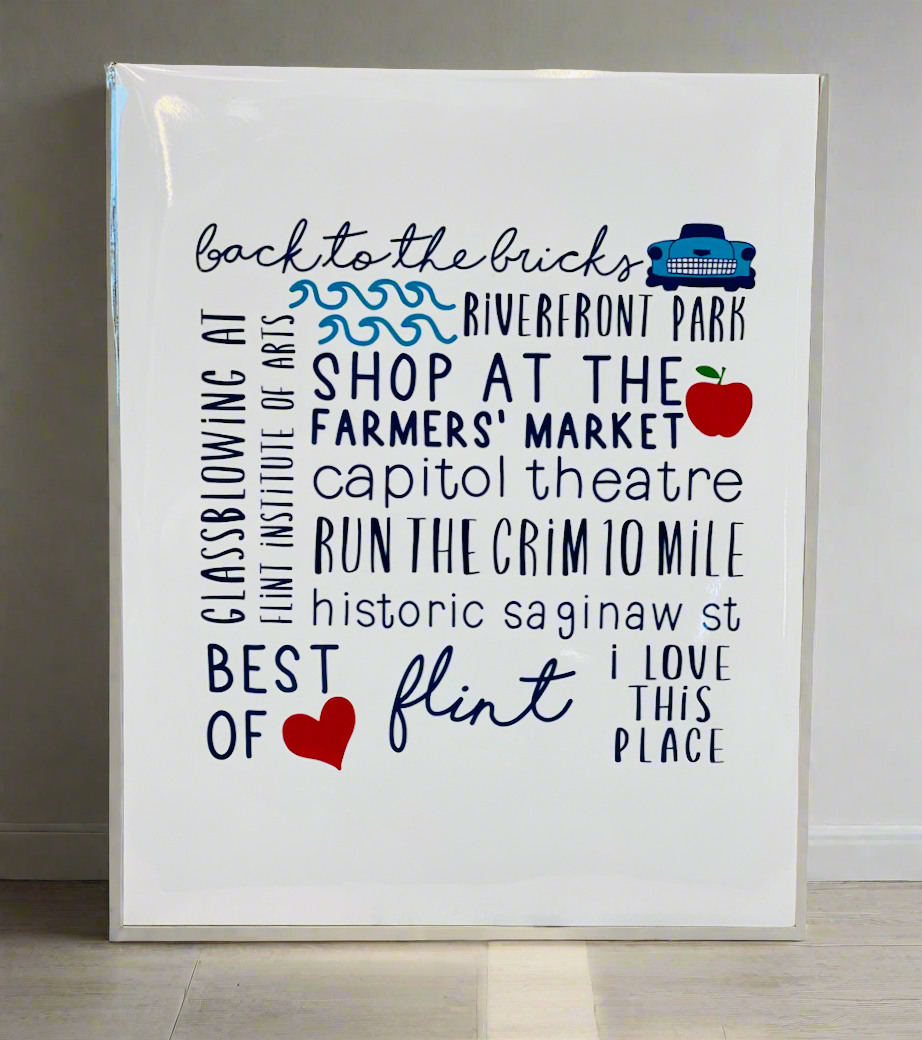 back to the bricks
RiVERFRONT PARK
GLASSBLOWiNG AT
FLiNT iNSTiTUTE OF ARTS
SHOP AT THE
FARMERS' MARKET
capitol theatre
RUN THE CRiM 10 MiLE
historic saginaw st
BEST
OF
flint
i LOVE
THiS
PLACE